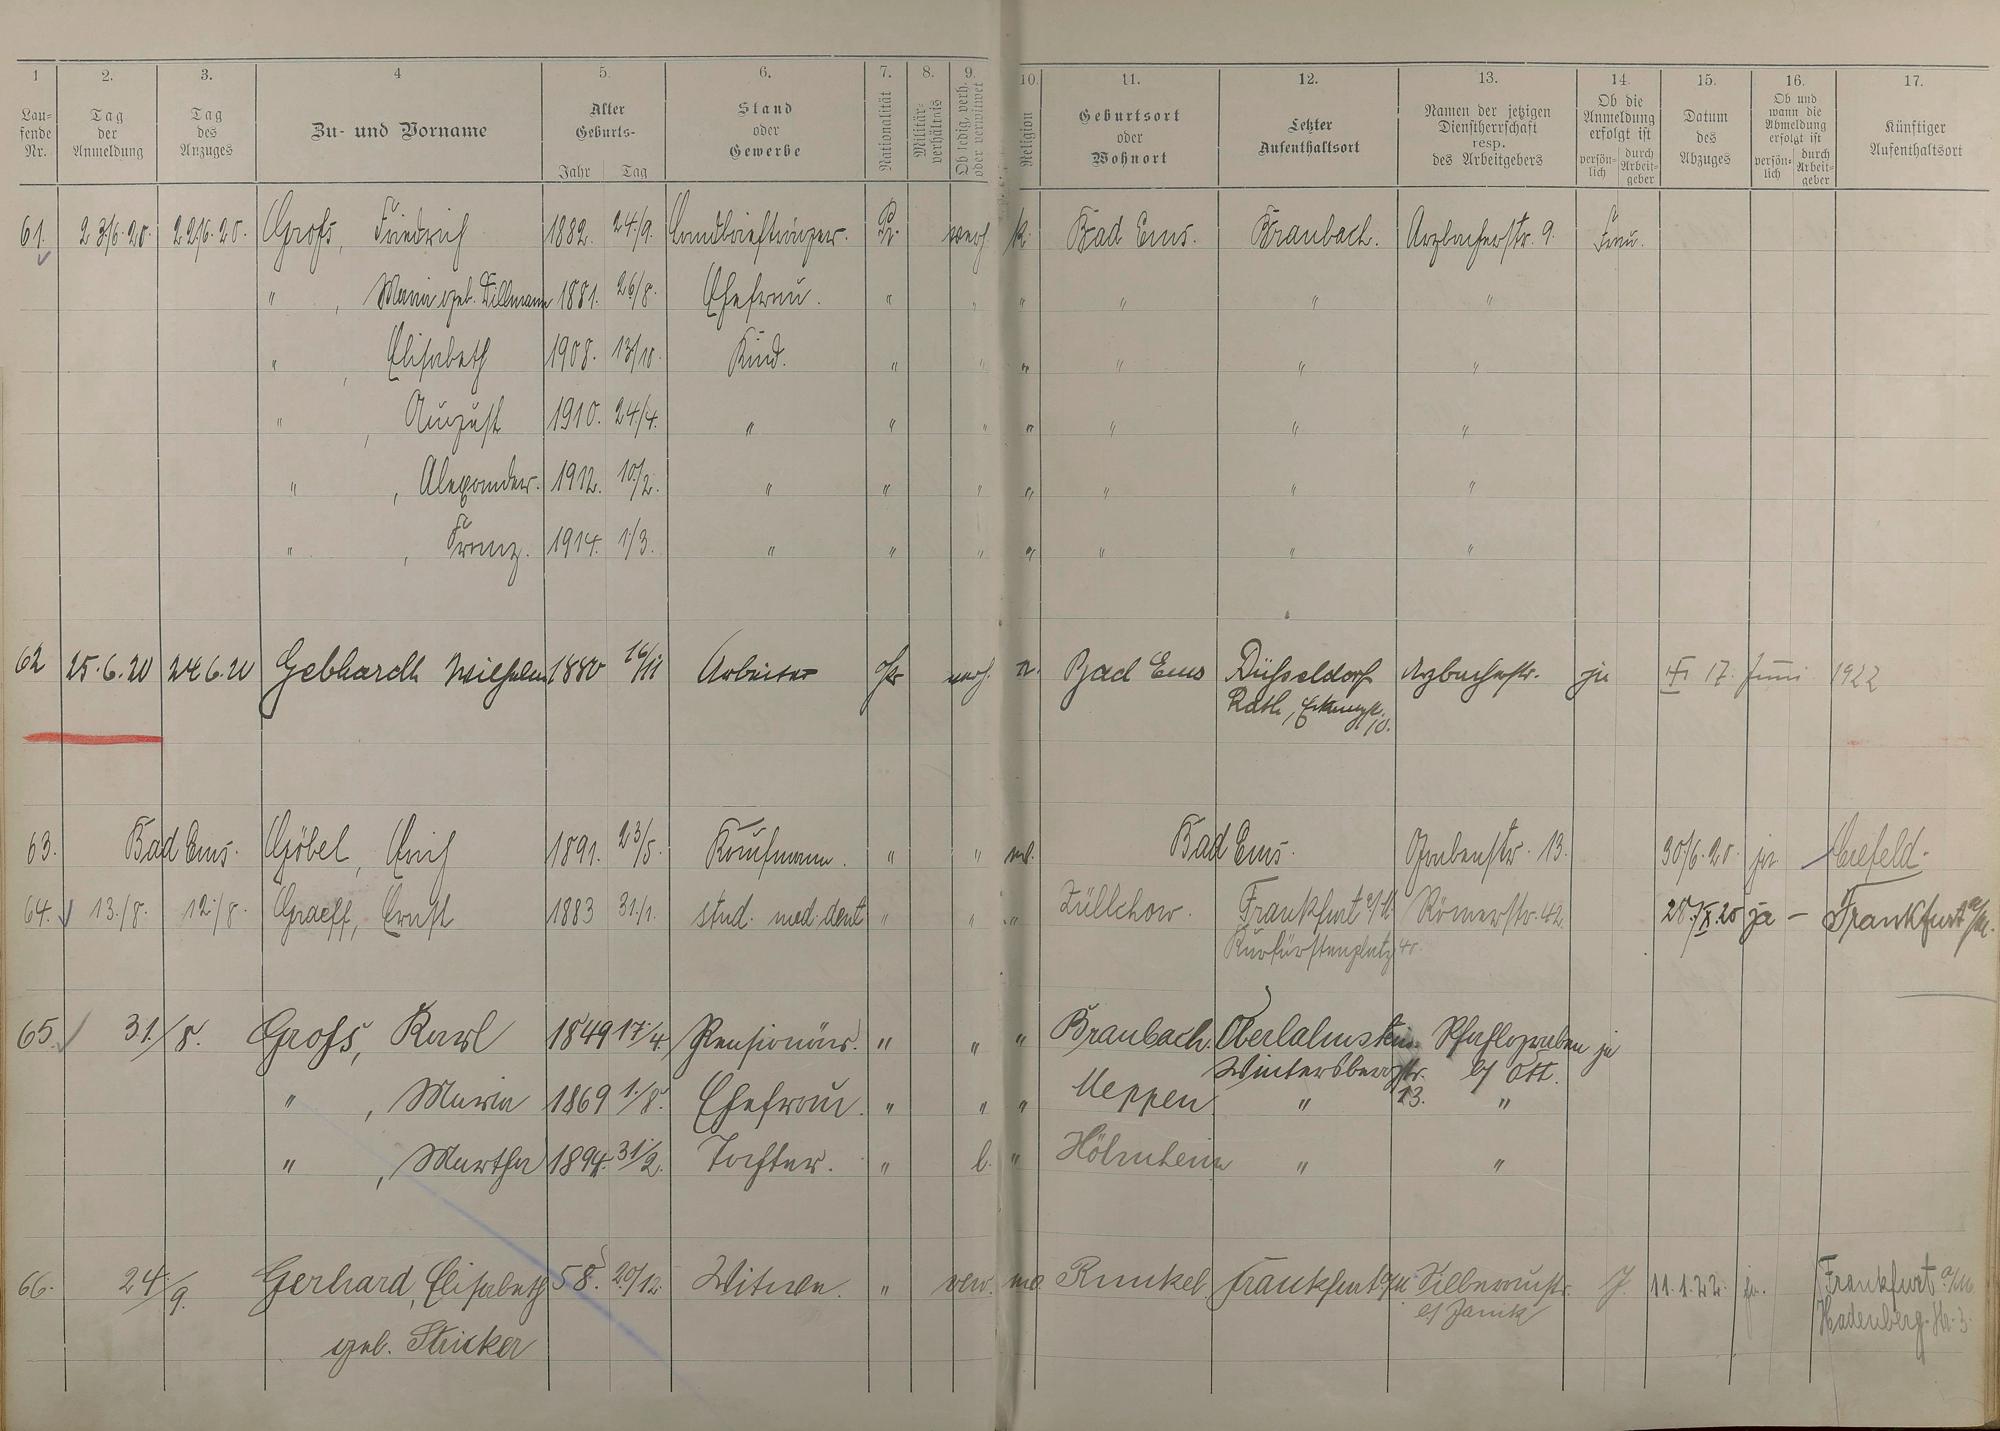 1 2. 3. 4 5. 6. 7. 8. 9. 10. 11. 12. 13. 14. 15. 16. 17.
Laufende Nr. Tag der Anmeldung Tag des Anzuges Zu- und Vorname Alter Geburts- Jahr Tag Stand oder Gewerbe Nationalität Militärverhältnis Ob ledig, verh. oder verwitwet Religion Geburtsort oder Wohnort Letzter Aufenthaltsort Namen der jetzigen Dienstherrschaft resp. des Arbeitgebers Ob die Anmeldung erfolgt ist persönlich durch Arbeitgeber Datum des Abzuges Ob und wann die Abmeldung erfolgt ist persönlich durch Arbeitgeber Künftiger Aufenthaltsort
61. 23/6.20. 22/6.20. Groß, Friedrich 1882. 24./9. Landbriefträger. Pr. verh. k. Bad Ems. Braubach. Arzbacherstr. 9. Frau.
" , Maria geb. Dillmann 1881. 26/8. Ehefrau. " " " " " "
" , Elisabeth 1908. 13/10. Kind. " " " " " "
" , August 1910. 24./4. " " " " " " "
" , Alexander. 1912. 10./2. " " " " " " "
" , Franz. 1914. 1./3. " " " " " " "
62 25.6.20 24.6.20 Gebhardt Wilhelm 1880 16/11 Arbeiter Pr verh. Bad Ems Düsseldorf Arzbacherstr. ja 17. Juni 1922
Rath, 10.
63. Bad Ems. Göbel, Erich 1891. 23/5. Kaufmann. " " Bad Ems. Grabenstr. 13. 30/6.20. ja Crefeld.
64. 13./8. 12./8. Graeff, Ernst 1883 31./1. stud. med. dent " " " Züllchow. Frankfurt a/M. Römerstr. 42. 28./X.20 ja – Frankfurt a/M.
Kurfürstenplatz 40.
65. 31./8. Groß, Karl 1849 17/4. Pensionär. " " " Braubach. Oberlahnstein. Pfahlgraben ja
Wintersbergstr. b/ Ott.
" , Maria 1869 1./8. Ehefrau. " " " Meppen " 13. "
" , Martha 1894. 31/2. Tochter. " l. " " "
66. 24/9. Gerhard, Elisabeth 58. 20/12. Witwe. " verw. Runkel. Frankfurt a/M Silberaustr. J. 11.1.22. ja. Frankfurt a/M.
b/ Janik
geb. Stricker